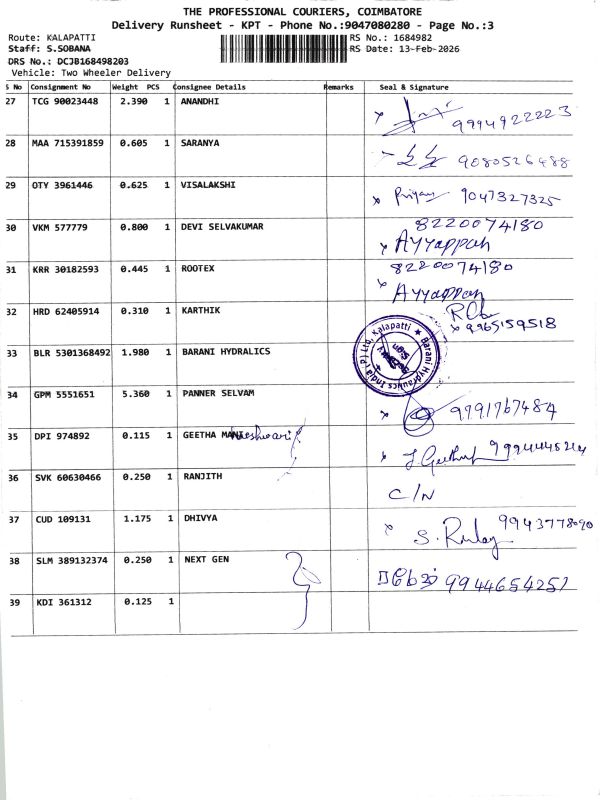 THE PROFESSIONAL COURIERS, COIMBATORE
Delivery Runsheet - KPT - Phone No.:9047080280 - Page No.:3
Route: KALAPATTI RS No.: 1684982
Staff: S.SOBANA RS Date: 13-Feb-2026
DRS No.: DCJB168498203
Vehicle: Two Wheeler Delivery
S No Consignment No Weight PCS Consignee Details Remarks Seal & Signature
27 TCG 90023448 2.390 1 ANANDHI 9994922223
28 MAA 715391859 0.605 1 SARANYA 9080526488
29 OTY 3961446 0.625 1 VISALAKSHI Priyan 9047327325
30 VKM 577779 0.800 1 DEVI SELVAKUMAR 8220074180
Ayyappan
31 KRR 30182593 0.445 1 ROOTEX 8220074180
Ayyappan
32 HRD 62405914 0.310 1 KARTHIK
9965159518
33 BLR 5301368492 1.980 1 BARANI HYDRALICS Barani Hydraulics India (P) Ltd, Kalapatti
34 GPM 5551651 5.360 1 PANNER SELVAM 9791767484
35 DPI 974892 0.115 1 GEETHA
36 SVK 60630466 0.250 1 RANJITH C/N
37 CUD 109131 1.175 1 DHIVYA 9943778090
38 SLM 389132374 0.250 1 NEXT GEN 9944654257
39 KDI 361312 0.125 1